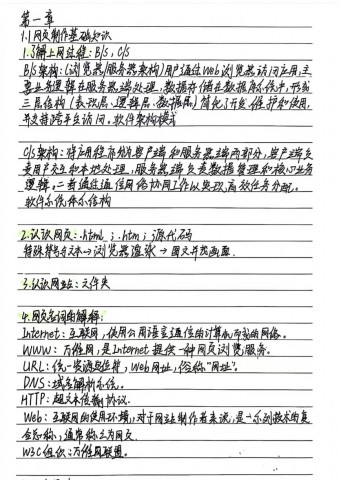 第一章
1.1 网页制作基础知识
1.了解上网结构:B/S,C/S
B/S架构:(浏览器/服务器架构)用户通过Web浏览器访问应用,主
要业务逻辑在服务器端处理,数据存储在数据库系统中,形成
三层结构(表现层、逻辑层、数据层)简化了开发、维护和使用,
并支持跨平台访问。软件架构模式
C/S架构:将应用程序分为客户端和服务器端两部分,客户端负
责用户交互和本地处理,服务器端负责数据管理和核心业务
逻辑。二者通过通信网络协同工作以实现高效任务分配。
软件系统体系结构
2.认识网页:.html ; .htm ; 源代码
特殊符号与文本→浏览器渲染→图文并茂画面.
3.认识网站:文件夹
4.网页名词的解释:
Internet:互联网,使用公用语言通信的计算机而成的网络。
WWW:万维网,是Internet提供一种网页浏览服务。
URL:统一资源定位符,Web网址,俗称"网址"。
DNS:域名解析系统。
HTTP:超文本传输协议.
Web:互联网的使用环境,对于网站制作者来说,是一系列技术的复
合总称,通常称之为网页.
W3C组织:万维网联盟。